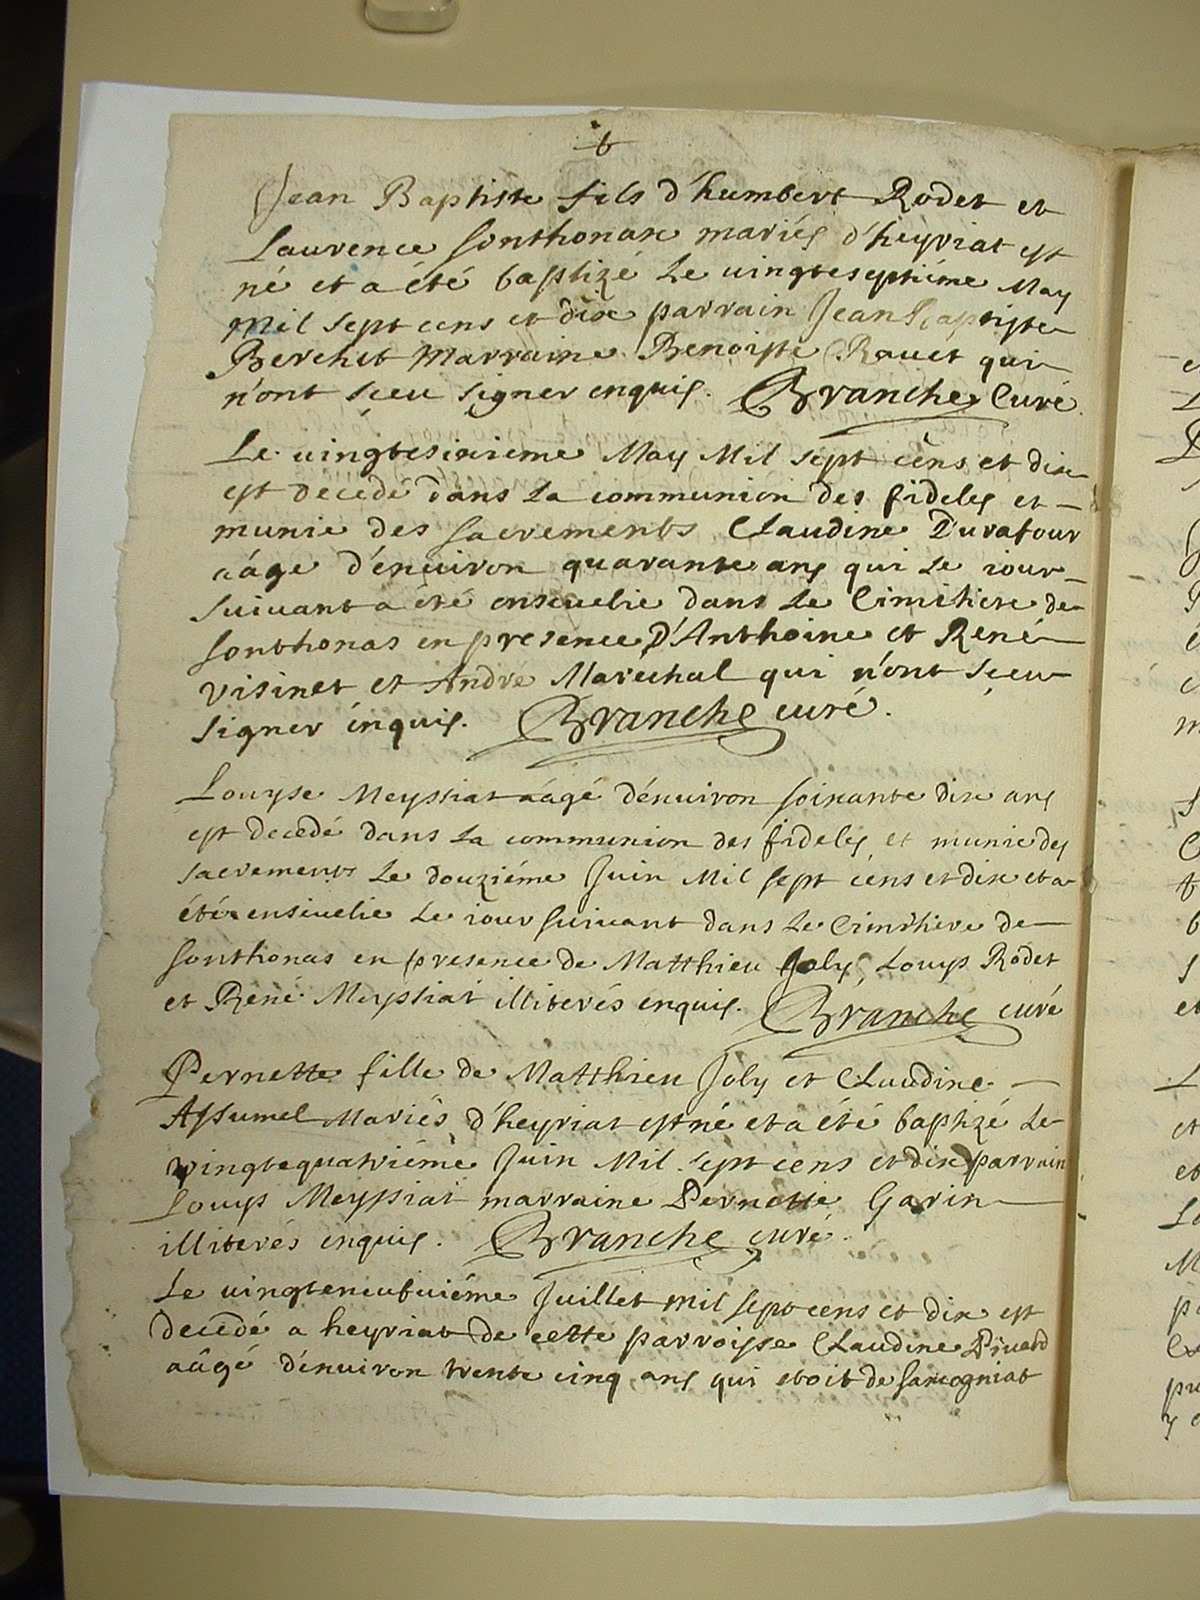 Jean Baptiste fils d'humbert Rodet et
Laurence Sonthonax mariés d'heyriat est
né et a été baptizé le vingteseptiéme May
Mil sept cens et dix parrain Jean Baptiste
Berchet Marraine Benoiste Ravet qui
n'ont sçeu signer enquis. Branche Curé
Le vingtesixiéme May Mil sept cèns et dix
est decedé dans la communion des fideles et
munie des sacrements Claudine Durafour
aâge d'énuiron quarante ans qui le iour
suiuant a été enseuelie dans le Cimitiere de
Sonthonas en presence D'Anthoine et René
Visinet et André Marechal qui n'ont sçeu
signer énquis. Branche curé.
Louyse Meyssiat aâgé dénuiron soixante dix ans
est decedé dans la communion des fideles et munie des
sacrements Le douziéme Juin Mil sept cens et dix et a
été enseuelie le iour suiuant dans Le Cimitiere de
Sonthonas en presence de Matthieu Joly, Louys Rodet
et René Meyssiat illiterés enquis. Branche curé
Pernette fille de Matthieu Joly et Claudine
Assumel Mariés d'heyriat est né et a été baptizé Le
vingtequatriéme Juin Mil sept cens et dix parrain
Louys Meyssiat marraine Pernette Gavin
illiterés enquis. Branche curé.
Le vingteneufuiéme Juillet Mil sept cens et dix est
decedé a heyriat de cette parroisse Claudine
aâgé d'énuiron trente cinq ans qui etoit de Samogniat